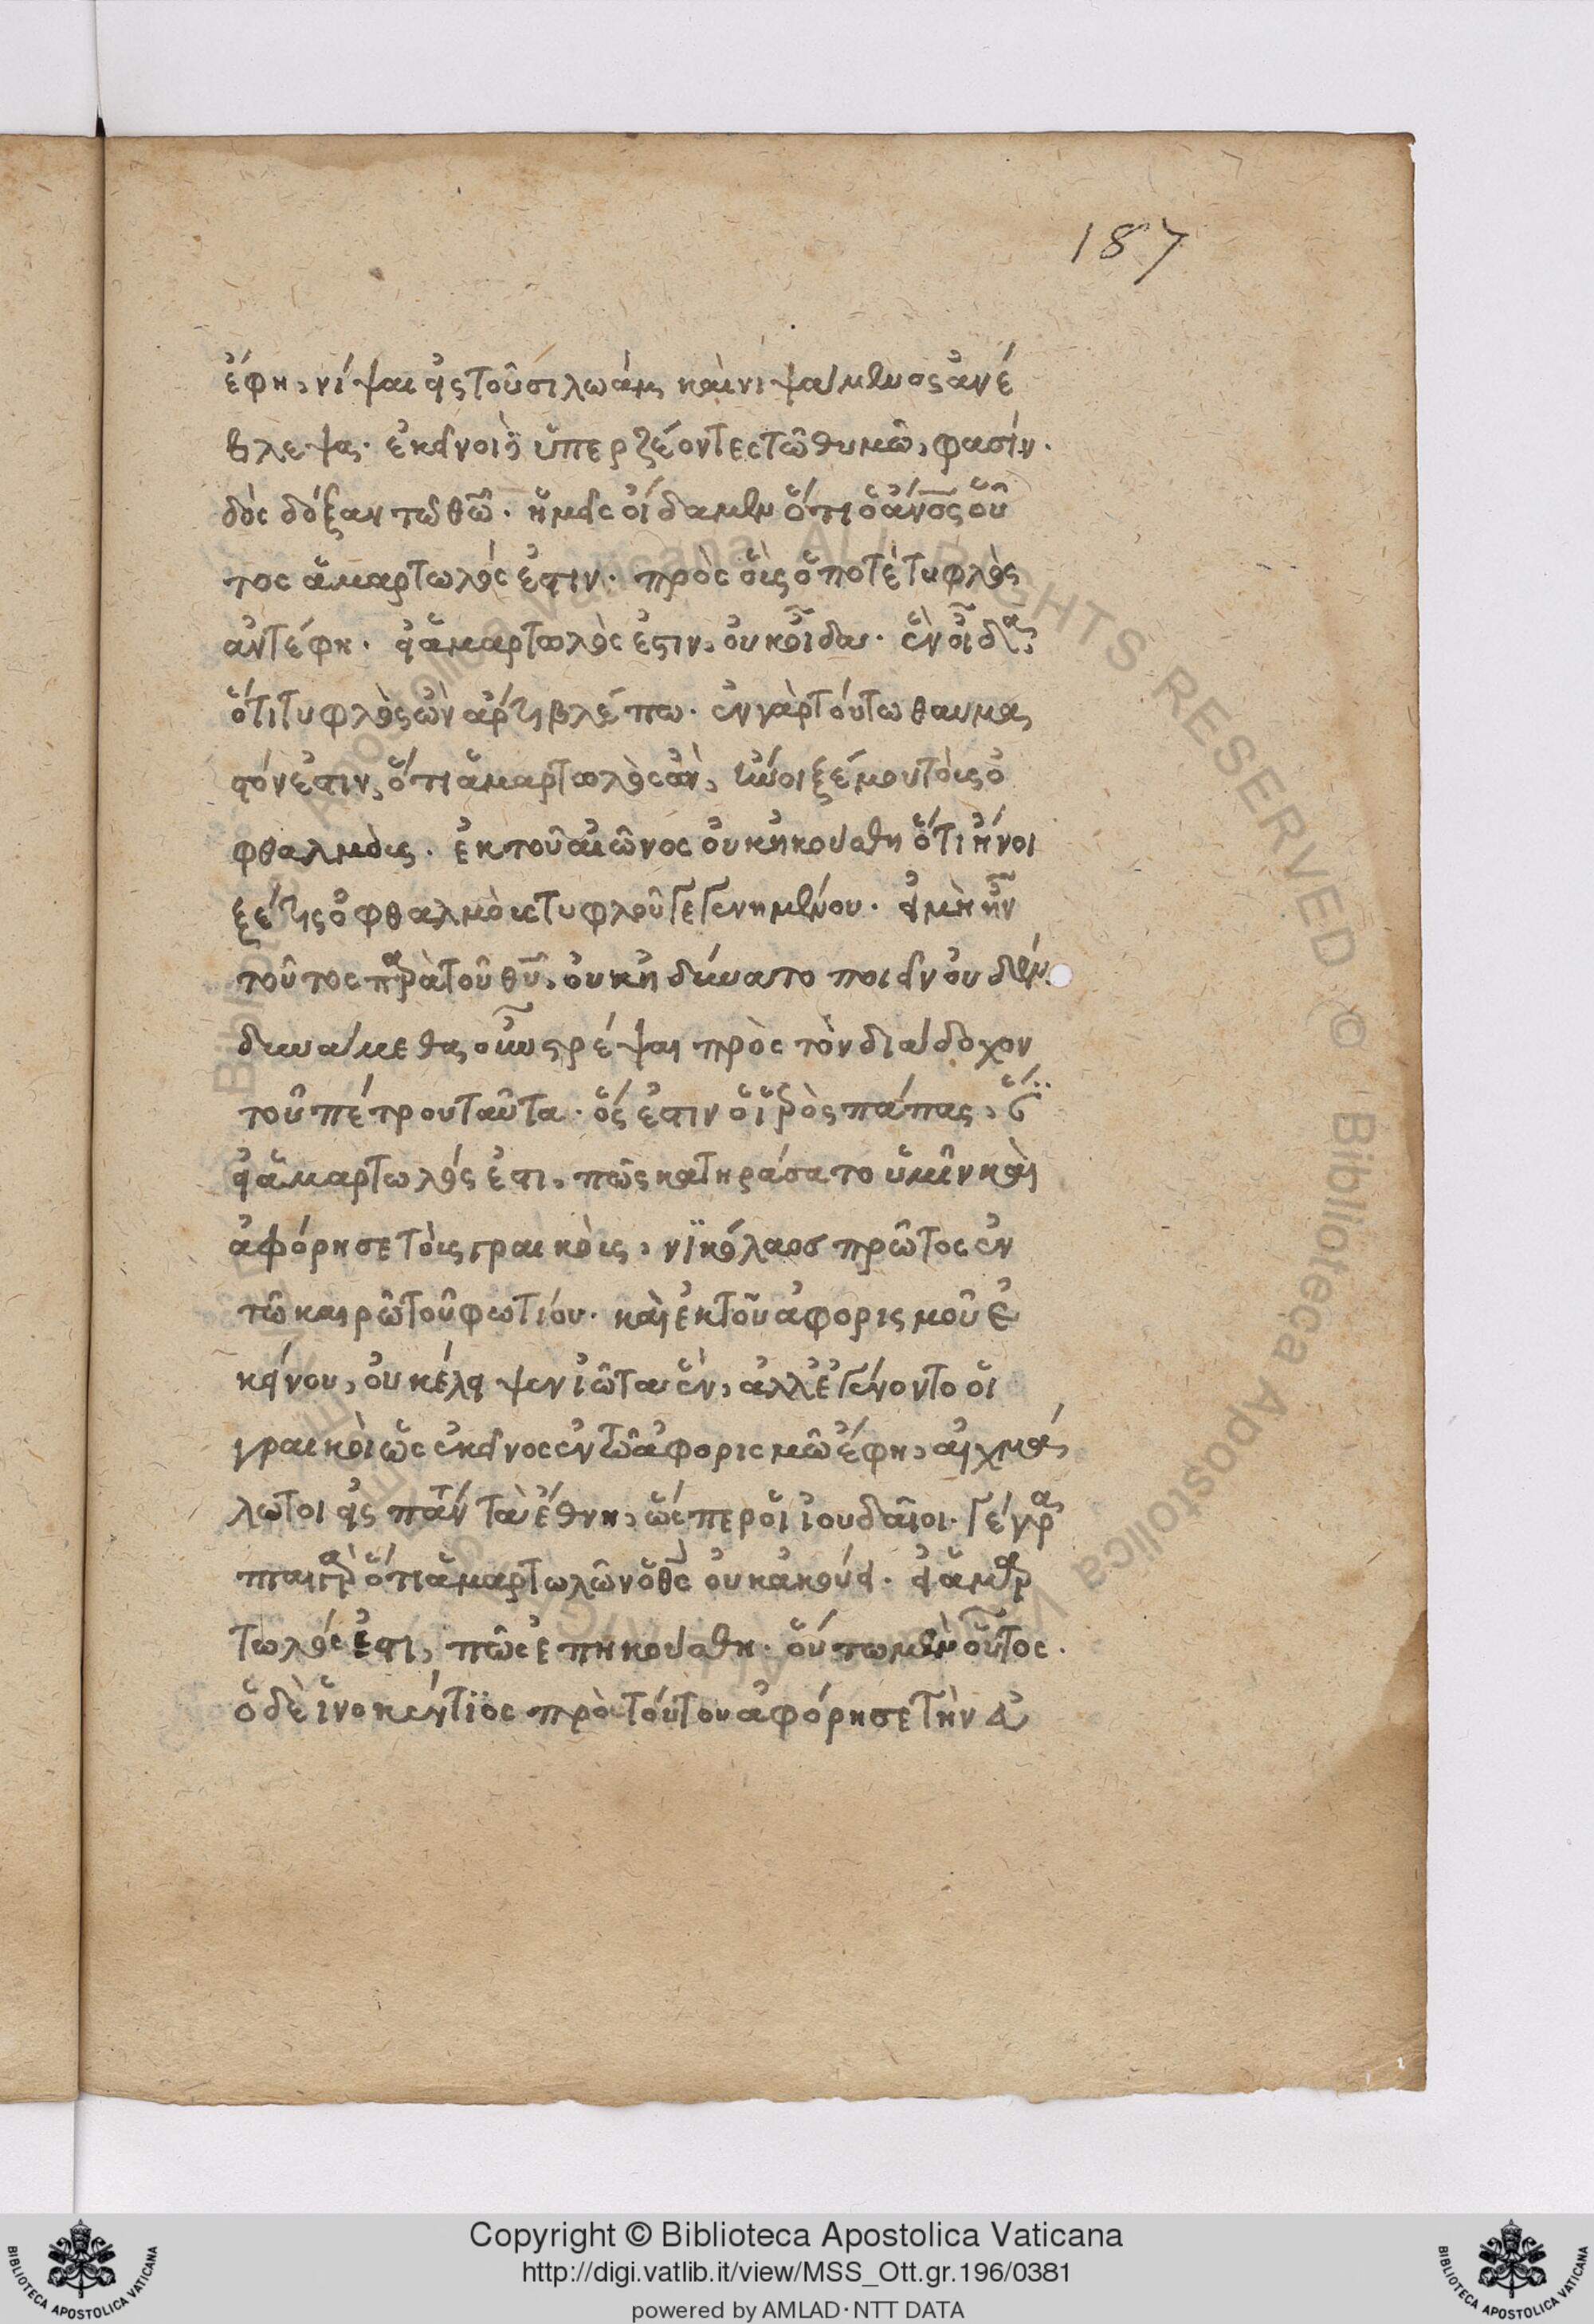 187
ἔφη, νίψαι εἰς τοῦ σιλωάμ, καὶ νιψάμενος ἀνέ
βλεψα. ἐκεῖνοι δὲ ὑπερζέοντες τῶ θυμῶ, φασίν.
δὸς δόξαν τῶ θῶ. ἡμεῖς οἴδαμεν ὅτι ὁ ἄνος οὗ
τος ἁμαρτωλός ἐστιν. πρὸς οἷς ὁ ποτὲ τυφλὸς
ἀντέφη. εἰ ἁμαρτωλὸς ἐστιν, οὐκ οἶδα. ἓν οἶδα,
ὅτι τυφλὸς ὢν ἄρτι βλέπω. ἐν γὰρ τούτω θαυμα
στόν ἐστιν, ὅτι ἁμαρτωλὸς ὢν, ἤνοιξέ μου τοὺς ὀ
φθαλμοὺς. ἐκ τοῦ αἰῶνος οὐκ ἠκούσθη ὅτι ἤνοι
ξέ τις ὀφθαλμοὺς τυφλοῦ γεγενημένου. εἰ μὴ ἦν
τοῦτος παρὰ τοῦ θυ, οὐκ ἠδύνατο ποιεῖν οὐδέν.
δυνάμεθα οὖν στρέψαι πρὸς τὸν διάδοχον
τοῦ πέτρου ταῦτα. ὅς ἐστιν ὁ ἱρὸς πάπας,
εἰ ἁμαρτωλός ἐστι, πῶς κατηράσατο ὑμῖν καὶ
ἀφόρησε τοὺς γραικοὺς, νϊκόλαος πρῶτος ἐν
τῶ καιρῶ τοῦ φωτίου. καὶ ἐκ τοῦ ἀφορισμοῦ ἐ
κείνου, οὐκ ἔλειψεν ἰῶτα ἓν, ἀλλ' ἐγένοντο οἱ
γραικοὶ ὡς ἐκεῖνος ἐν τῶ ἀφορισμῶ ἔφη, αἰχμά
λωτοι εἰς πάντα τὰ ἔθνη, ὥσπερ οἱ ἰουδαῖοι. γέγρα
πται γὰρ ὅτι ἁμαρτωλῶν ὁ θς οὐκ ἀκούει. εἰ ἁμαρ
τωλός ἐστι, πῶς ἐπηκούσθη. οὕπω μὲν οὗτος.
ὁ δὲ ἰνοκέντϊος πρὸ τούτου ἀφόρησε τὴν ἀ
Copyright © Biblioteca Apostolica Vaticana
http://digi.vatlib.it/view/MSS_Ott.gr.196/0381
powered by AMLAD·NTT DATA